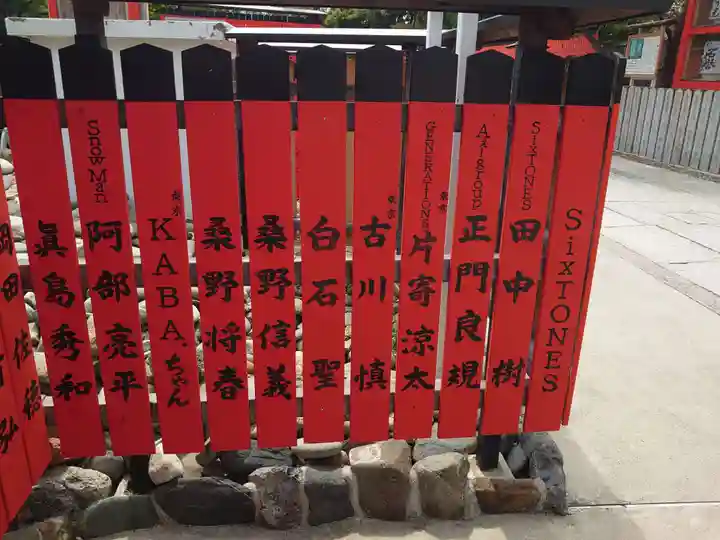 SixTONES
SixTONES
田中樹
Aぇ!group
正門良規
GENERATIONS
東京
片寄涼太
東京
古川慎
白石聖
桑野信義
桑野将春
東京
KABA.ちゃん
Snow Man
阿部亮平
眞島秀和